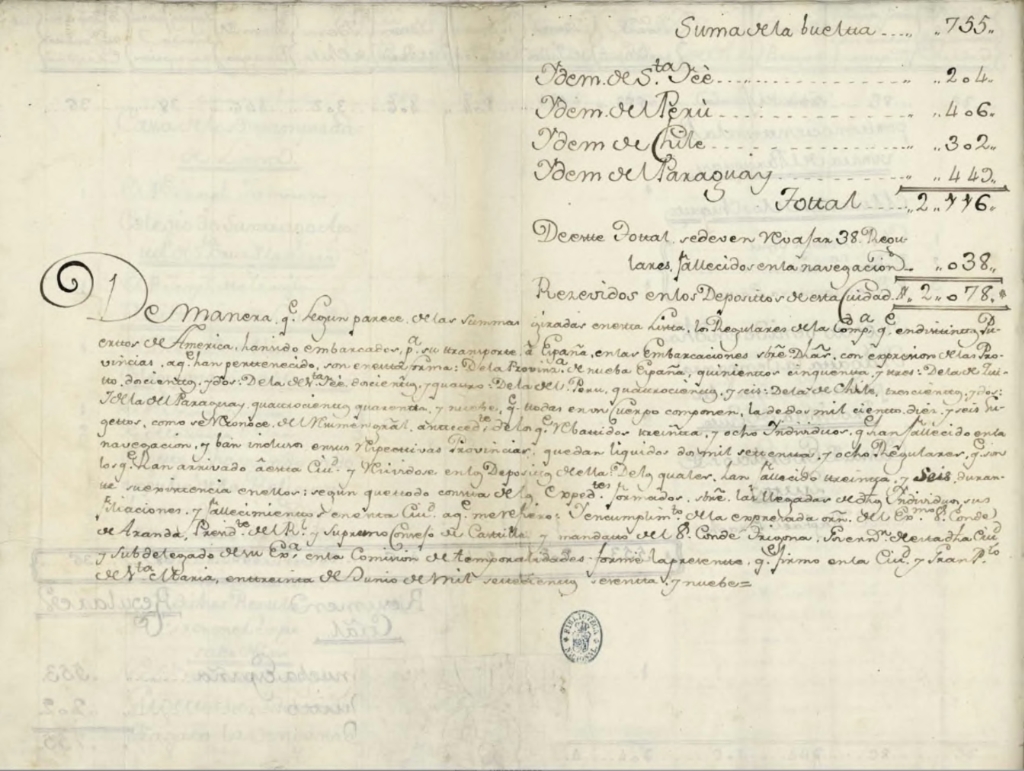 Suma de la buelua.... „ „755„
Ydem. de S.ta Feè............ „ „204.
Ydem. del Perù............ „ „406„
Ydem de Chile............ „ „302„
Ydem del Paraguay......... „ „449„
Tottal.....„2„116„
De este Tottal, se deven Revajar 38. Regu-
lares, fallecidos en la navegación. „038„
Rezevidos en los Depositos de esta Ciudad. „2„078„
De manera, q.e segun parece, de las Summas giradas en esta Lista, los Regulares de la Comp.a q.e en distintos Pu-
ertos de America, han sido embarcados, p.a su transporte, à España, en las Embarcaciones sbre Dhas, con expresion de las Pro-
vincias, aq.e han pertenecido, son en esta forma: De la Provinz.a de nueba España, quinientos cinquenta, y tres: De la de Qui-
to, doscientos, y dos: De la de S.ta Feé, doscientos, y quatro: De la del Peru, quatrocientos, y seis: De la de Chile, trescientos, y dos:
Y de la del Paraguay, quatrocientos quarenta, y nuebe, q.e todas en un Cuerpo componen, la de dos mil ciento, diez, y seis su-
getos, como se Reconoce, del Numeral, antecedte, de los q.e Rebatidos treinta, y ocho Individuos, q.e han fallecido en la
navegacion, y bàn inclusos en sus Respectivas Provincias, quedan liquidos dos mil settenta, y ocho Regulares, q.e son
los q.e han arrivado à esta Ciu.d y Recividose en los Depositos de ella: De los quales, han fallecido treinta, y seis, duran-
te su existencia en ellos: segun que todo consta de los Expedtes formados, sbre. las llegadas de dhos Individuos, sus
filiaciones, y fallecimientos en esta Ciu.d aq.e me refiero: Y en cumplim.to de la expresada orn. del Ex.mo S.r Conde
de Aranda, Presid.te del R.l y Supremo Consejo de Castilla, y mandato del S.r Conde Trigona, Asend.te de esta dha Ciu.d
y Subdelegado de su Ex.a en la Comision de temporalidades formè la presente, q.e firmo en la Ciu.d y Gran P.to
de S.ta Maria, en treinta de Junio de mil settecientos, sesenta, y nuebe=
BIBLIOTECA
NACIONAL